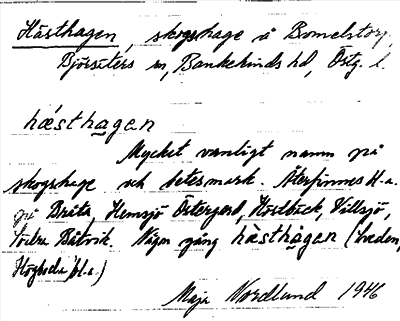 Hästhagen, skogshage å Bomelstorp,
Björsäters sn, Bankekinds hd, Östg. l.
hæsthagen
Mycket vanligt namn på
skogshage och betesmark. Återfinnes bl.a.
på Bräta, Hemsjö Östergård, Höstbäck, Villsjö,
Södra Båtvik. Någon gång hæsthagen (Sveden,
Högboda bl.a.)
Maja Nordlund 1946